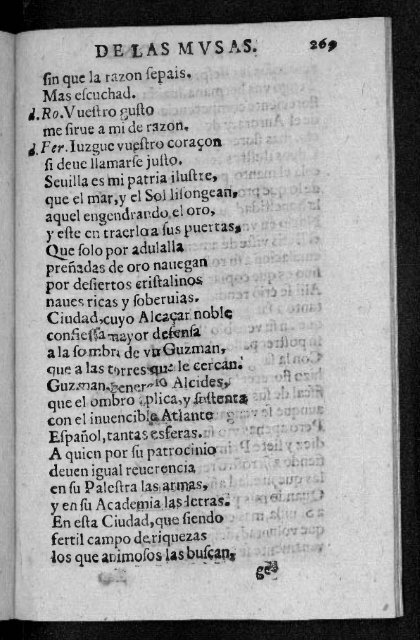 DE LAS MVSAS. 269
sin que la razon sepais.
Mas escuchad.
d. Ro. Vuestro gusto
me sirue a mi de razon.
d. Fer. Iuzgue vuestro coraçon
si deue llamarse justo.
Seuilla es mi patria ilustre,
que el mar, y el Sol lisongean,
aquel engendrando el oro,
y este en traerlo a sus puertas,
Que solo por adulalla
preñadas de oro nauegan
por desiertos cristalinos
naues ricas y soberuias.
Ciudad, cuyo Alcaçar noble
confiessa mayor defensa
a la sombra de vn Guzman,
que a las torres que le cercan.
Guzman, Alcides,
que el ombro aplica, y sustenta
con el inuencible Atlante
Español, tantas esferas.
A quien por su patrocinio
deuen igual reuerencia
en su Palestra las armas,
y en su Academia las letras.
En esta Ciudad, que siendo
fertil campo de riquezas
los que animosos las buscan,